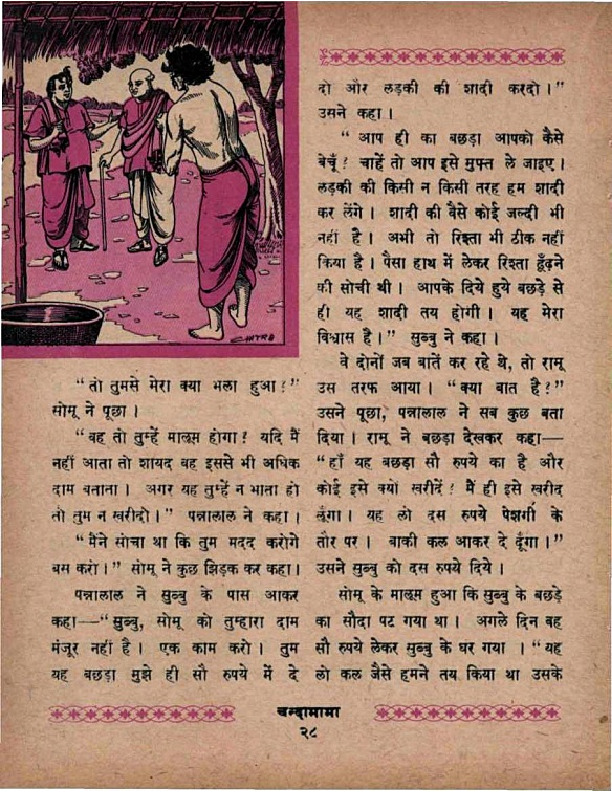 CHITRA
"तो तुमसे मेरा क्या भला हुआ?"
सोमू ने पूछा।
"वह तो तुम्हें मालूम होगा? यदि मैं
नहीं आता तो शायद वह इससे भी अधिक
दाम बताता। अगर यह तुम्हें न भाता हो
तो तुम न खरीदो।" पन्नालाल ने कहा।
"मैंने सोचा था कि तुम मदद करोगे
बस करो।" सोमू ने कुछ झिड़क कर कहा।
पन्नालाल ने सुब्बु के पास आकर
कहा—"सुब्बु, सोमू को तुम्हारा दाम
मंजूर नहीं है। एक काम करो। तुम
यह बछड़ा मुझे ही सौ रुपये में दे
दो और लड़की की शादी करदो।"
उसने कहा।
"आप ही का बछड़ा आपको कैसे
बेचूँ? चाहें तो आप इसे मुफ्त ले जाइए।
लड़की की किसी न किसी तरह हम शादी
कर लेंगे। शादी की वैसे कोई जल्दी भी
नहीं है। अभी तो रिश्ता भी ठीक नहीं
किया है। पैसा हाथ में लेकर रिश्ता ढूँढ़ने
की सोची थी। आपके दिये हुये बछड़े से
ही यह शादी तय होगी। यह मेरा
विश्वास है।" सुब्बु ने कहा।
वे दोनों जब बातें कर रहे थे, तो रामू
उस तरफ आया। "क्या बात है?"
उसने पूछा, पन्नालाल ने सब कुछ बता
दिया। रामू ने बछड़ा देखकर कहा—
"हाँ यह बछड़ा सौ रुपये का है और
कोई इसे क्यों खरीदें? मैं ही इसे खरीद
लूँगा। यह लो दस रुपये पेशगी के
तौर पर। बाकी कल आकर दे दूँगा।"
उसने सुब्बु को दस रुपये दिये।
सोमू के मालूम हुआ कि सुब्बु के बछड़े
का सौदा पट गया था। अगले दिन वह
सौ रुपये लेकर सुब्बु के घर गया। "यह
लो कल जैसे हमने तय किया था उसके
चन्दामामा
२८